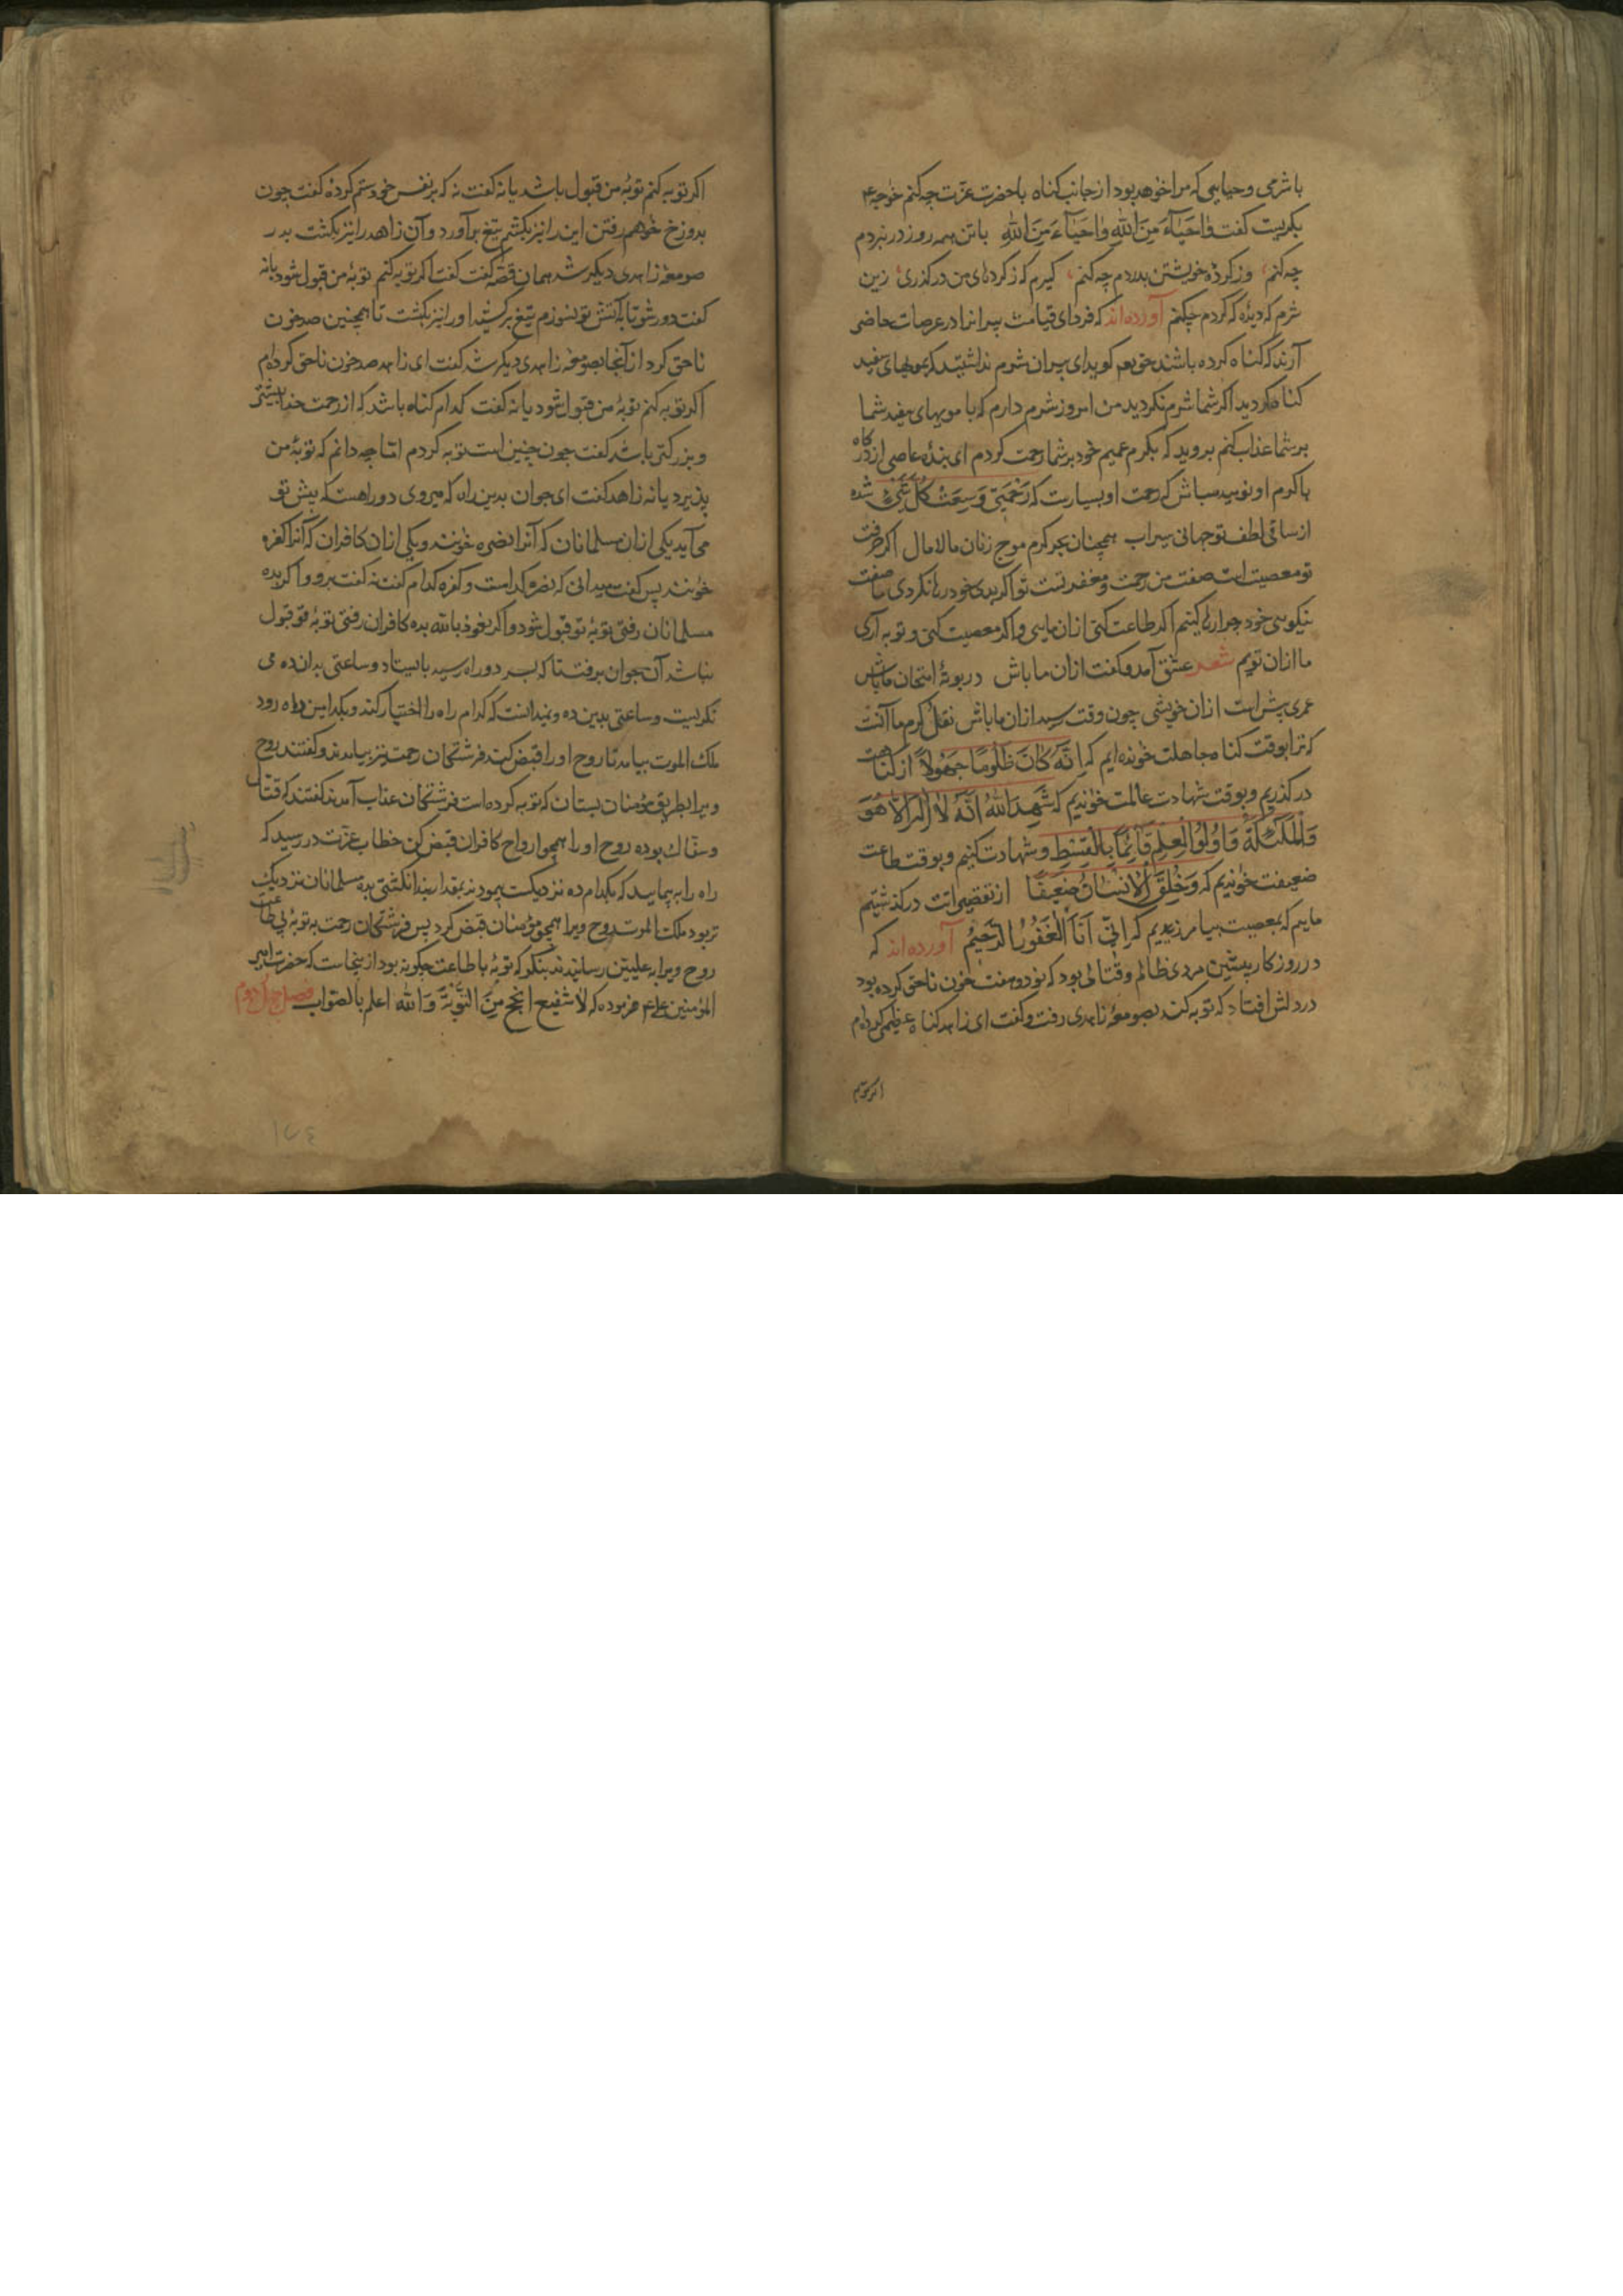 با شرمی و حیایی که مرا خواهد بود از جانب کناه با حضرت عزّت چه کنم خواجه ع
بکریست کفت وٰاحَیٰآءَ مِنَ اللهِ وٰاحَیٰآءَ مِنَ اللهِ با تن همه روز در نبردم
چه کنم، وز کردهٔ خویشتن بدردم چه کنم، کیرم که ز کردهای من درکذری زین
شرم که دیدهٔ که کردم چکنم آورده‌اند که فردای قیامت پیرانرا در عرصات حاضر
آرند که کناه کرده باشند حق تعم کوید ای پیران شوم نداشتید که بمویهای سفید
کناه کردید اکر شما شرم نکردید من امروز شرم دارم که با مویهای سفید شما
بر شما عذاب کنم بروید که بکرم عمیم خود بر شما رحمت کردم ای بندهٔ عاصی از درکاه
با کرم او نومید مباش که رحمت او بسیارست که رَحْمَتِی وَسِعَتْ کُلَّ شَیْءٍ شده
از ساقی لطف تو جهانی سیراب همچنان بحر کرم موج زنان مالامال اکر حرفت
تو معصیت است صفت من رحمت و مغفرتست تو اکر بدی خود رها نکردی ما صفت
نیکویی خود چرا رها کنیم اکر طاعت کنی از ان مایی و اکر معصیت کنی و توبه آری
ما ازان توییم شعر عشق آمد و کفت ازان ما باش در بوتهٔ امتحان ما باش
عمری پیش است ازان خویشی چون وقت رسید ازان ما باش نقل کرم ما آنست
که ترا بوقت کناه جاهلت خوانده‌ایم که اِنَّهُ کٰانَ ظَلُومًا جَهُولًا از کناهت
درکذریم و بوقت شهادت عالمت خواندیم که شَهِدَ اللهُ اَنَّهُ لٰا اِلٰهَ اِلّٰا هُوَ
وَالْمَلٰئِکَةُ وَاُولُوا الْعِلْمِ قٰآئِمًا بِالْقِسْطِ و شهادت کنیم و بوقت طاعت
ضعیفت خواندیم که وَخُلِقَ الْاِنْسٰانُ ضَعِیفًا از تقصیرات درکذشتیم
ماییم که بمعصیت بیامرزیدیم که اِنّی اَنَا الْغَفُورُ الرَّحِیمُ آورده‌اند که
در روزکار پیشین مردی ظالم و قتّالی بود که نود و هفت خون ناحق کرده بود
در دلش افتاد که توبه کند بصومعهٔ زاهدی رفت و کفت ای زاهد کناه عظیم کرده‌ام
اکر توبه کنم توبهٔ من قبول باشد یا نه کفت نه که بر نفس خود ستم کردهٔ کفت چون
بدوزخ خواهم رفتن این را نیز بکشم تیغ برآورد و آن زاهد را نیز بکشت بدر
صومعهٔ زاهدی دیکر شد همان قصّه کفت کفت اکر توبه کنم توبهٔ من قبول شود یا نه
کفت دور شو تا بآتش تو نسوزم تیغ برکشید او را نیز بکشت تا همچنین صد خون
ناحق کرد از آنجا بصومعهٔ زاهدی دیکر شد کفت ای زاهد صد خون ناحق کرده‌ام
اکر توبه کنم توبهٔ من قبول شود یا نه کفت کدام کناه باشد که از رحمت خدا بیشتر
و بزرکتر باشد کفت چون چنین است توبه کردم امّا چه دانم که توبهٔ من
پذیرد یا نه زاهد کفت ای جوان بدین راه که میروی دو راهست که پیش تو
می‌آید یکی ازان مسلمانان که آنرا نضره خوانند و یکی ازان کافران که آنرا کفره
خوانند پس کفت میدانی که نضره کدامست و کفره کدام کفت نه کفت برو و اکر بده
مسلمانان رفتی توبهٔ تو قبول شود و اکر نعوذ بالله بده کافران رفتی توبهٔ تو قبول
نباشد آن جوان برفت تا که بسر دو راه رسید بایستاد و ساعتی بدان ده می
نکریست و ساعتی بدین ده و نمیدانست که کدام راه را اختیار کند و بکدامین راه رود
ملک الموت بیامد تا روح او را قبض کند فرشتکان رحمت نیز بیامدند و کفتند روح
ویرا بطریق مؤمنان بستان که توبه کرده است فرشتکان عذاب آمدند کفتند که قتّال
و سفّاک بوده روح او را همچو ارواح کافران قبض کن خطاب عزّت در رسید که
راه را بپیمایید که بکدام ده نزدیکست پیمودند بمقدار بند انکشتی بده مسلمانان نزدیک
تر بود ملک الموت روح ویرا همچو مؤمنان قبض کرد پس فرشتکان رحمت به توبهٔ بی طاعت
روح ویرا به علیین رسانیدند بنکر که توبهٔ با طاعت چکونه بود ازینجاست که حضرت امیر
المؤمنین علی ع فرموده که لا شفیع انجح مِنَ التَّوْبَةِ وَالله اعلم بالصّواب فصل چهل دوم
۱۷۴